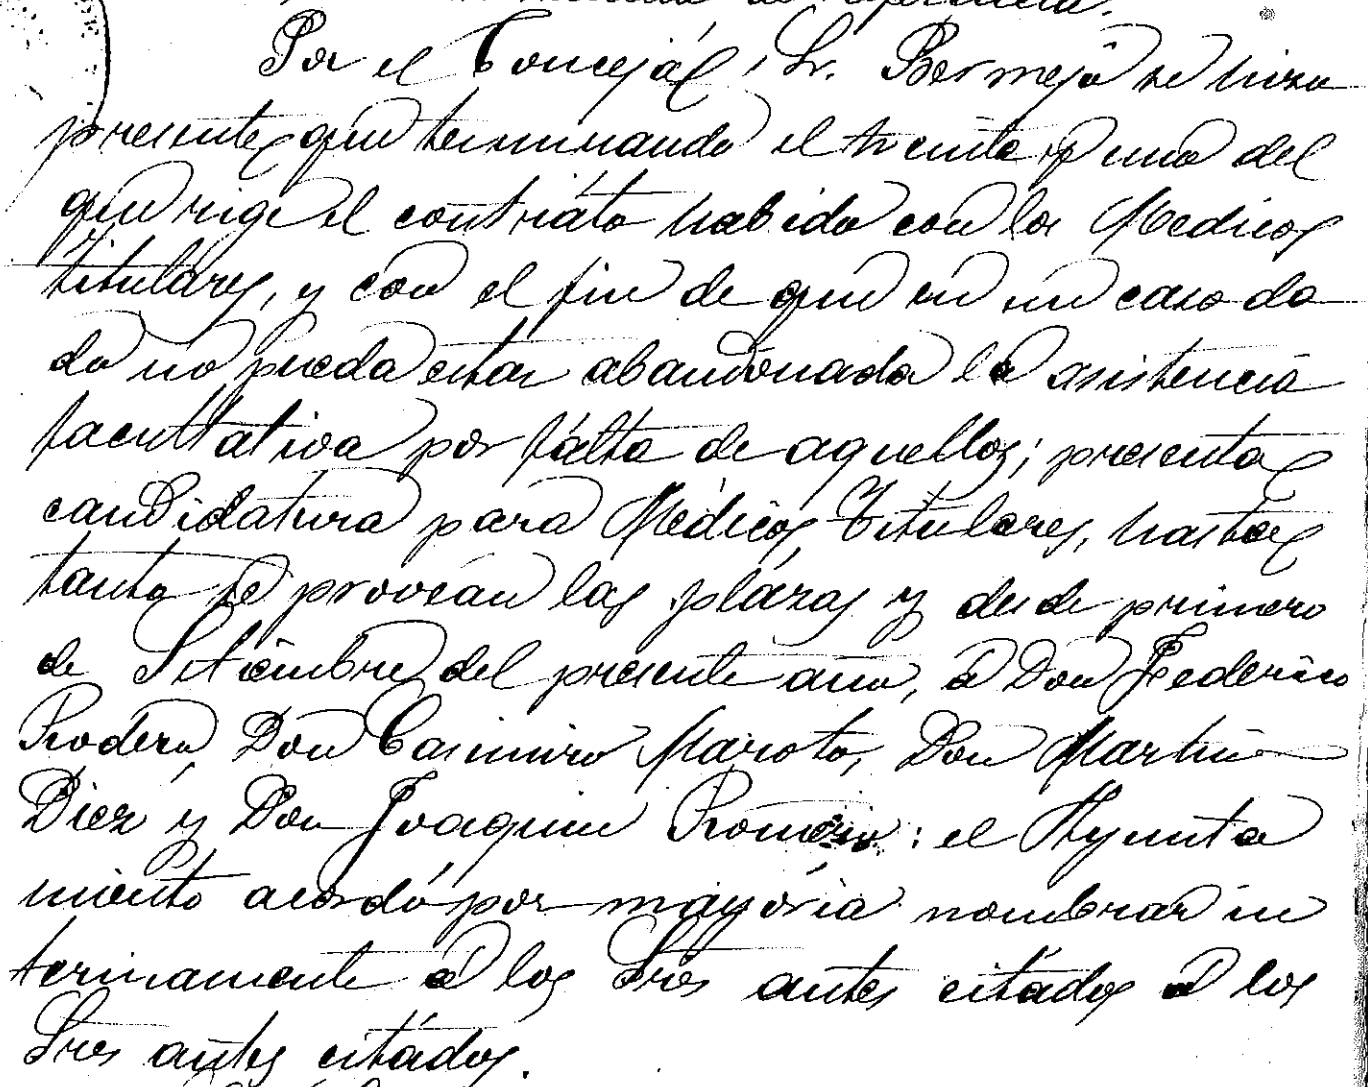 de referencia.
Por el Concejál, Sr. Bermejo se hizo
presente, que terminando el treinta y uno del
que rige el contráto habido con los Medicos
tituláres, y con el fin de que en un caso da
do no pueda estar abandonada la asistencia
facultativa por fálta de aquellos; presenta
candidatura para Médicos Titulares, hasta
tanto se provean las plázas y desde primero
de Setiembre del presente año, á Don Federico
Rodera Don Casimiro Maroto, Don Martin
Diez y Don Joaquin Romero: el Ayunta
miento acordó por mayoria nombrar in
terinamente á los Sres antes citádos á los
Sres antes citádos.